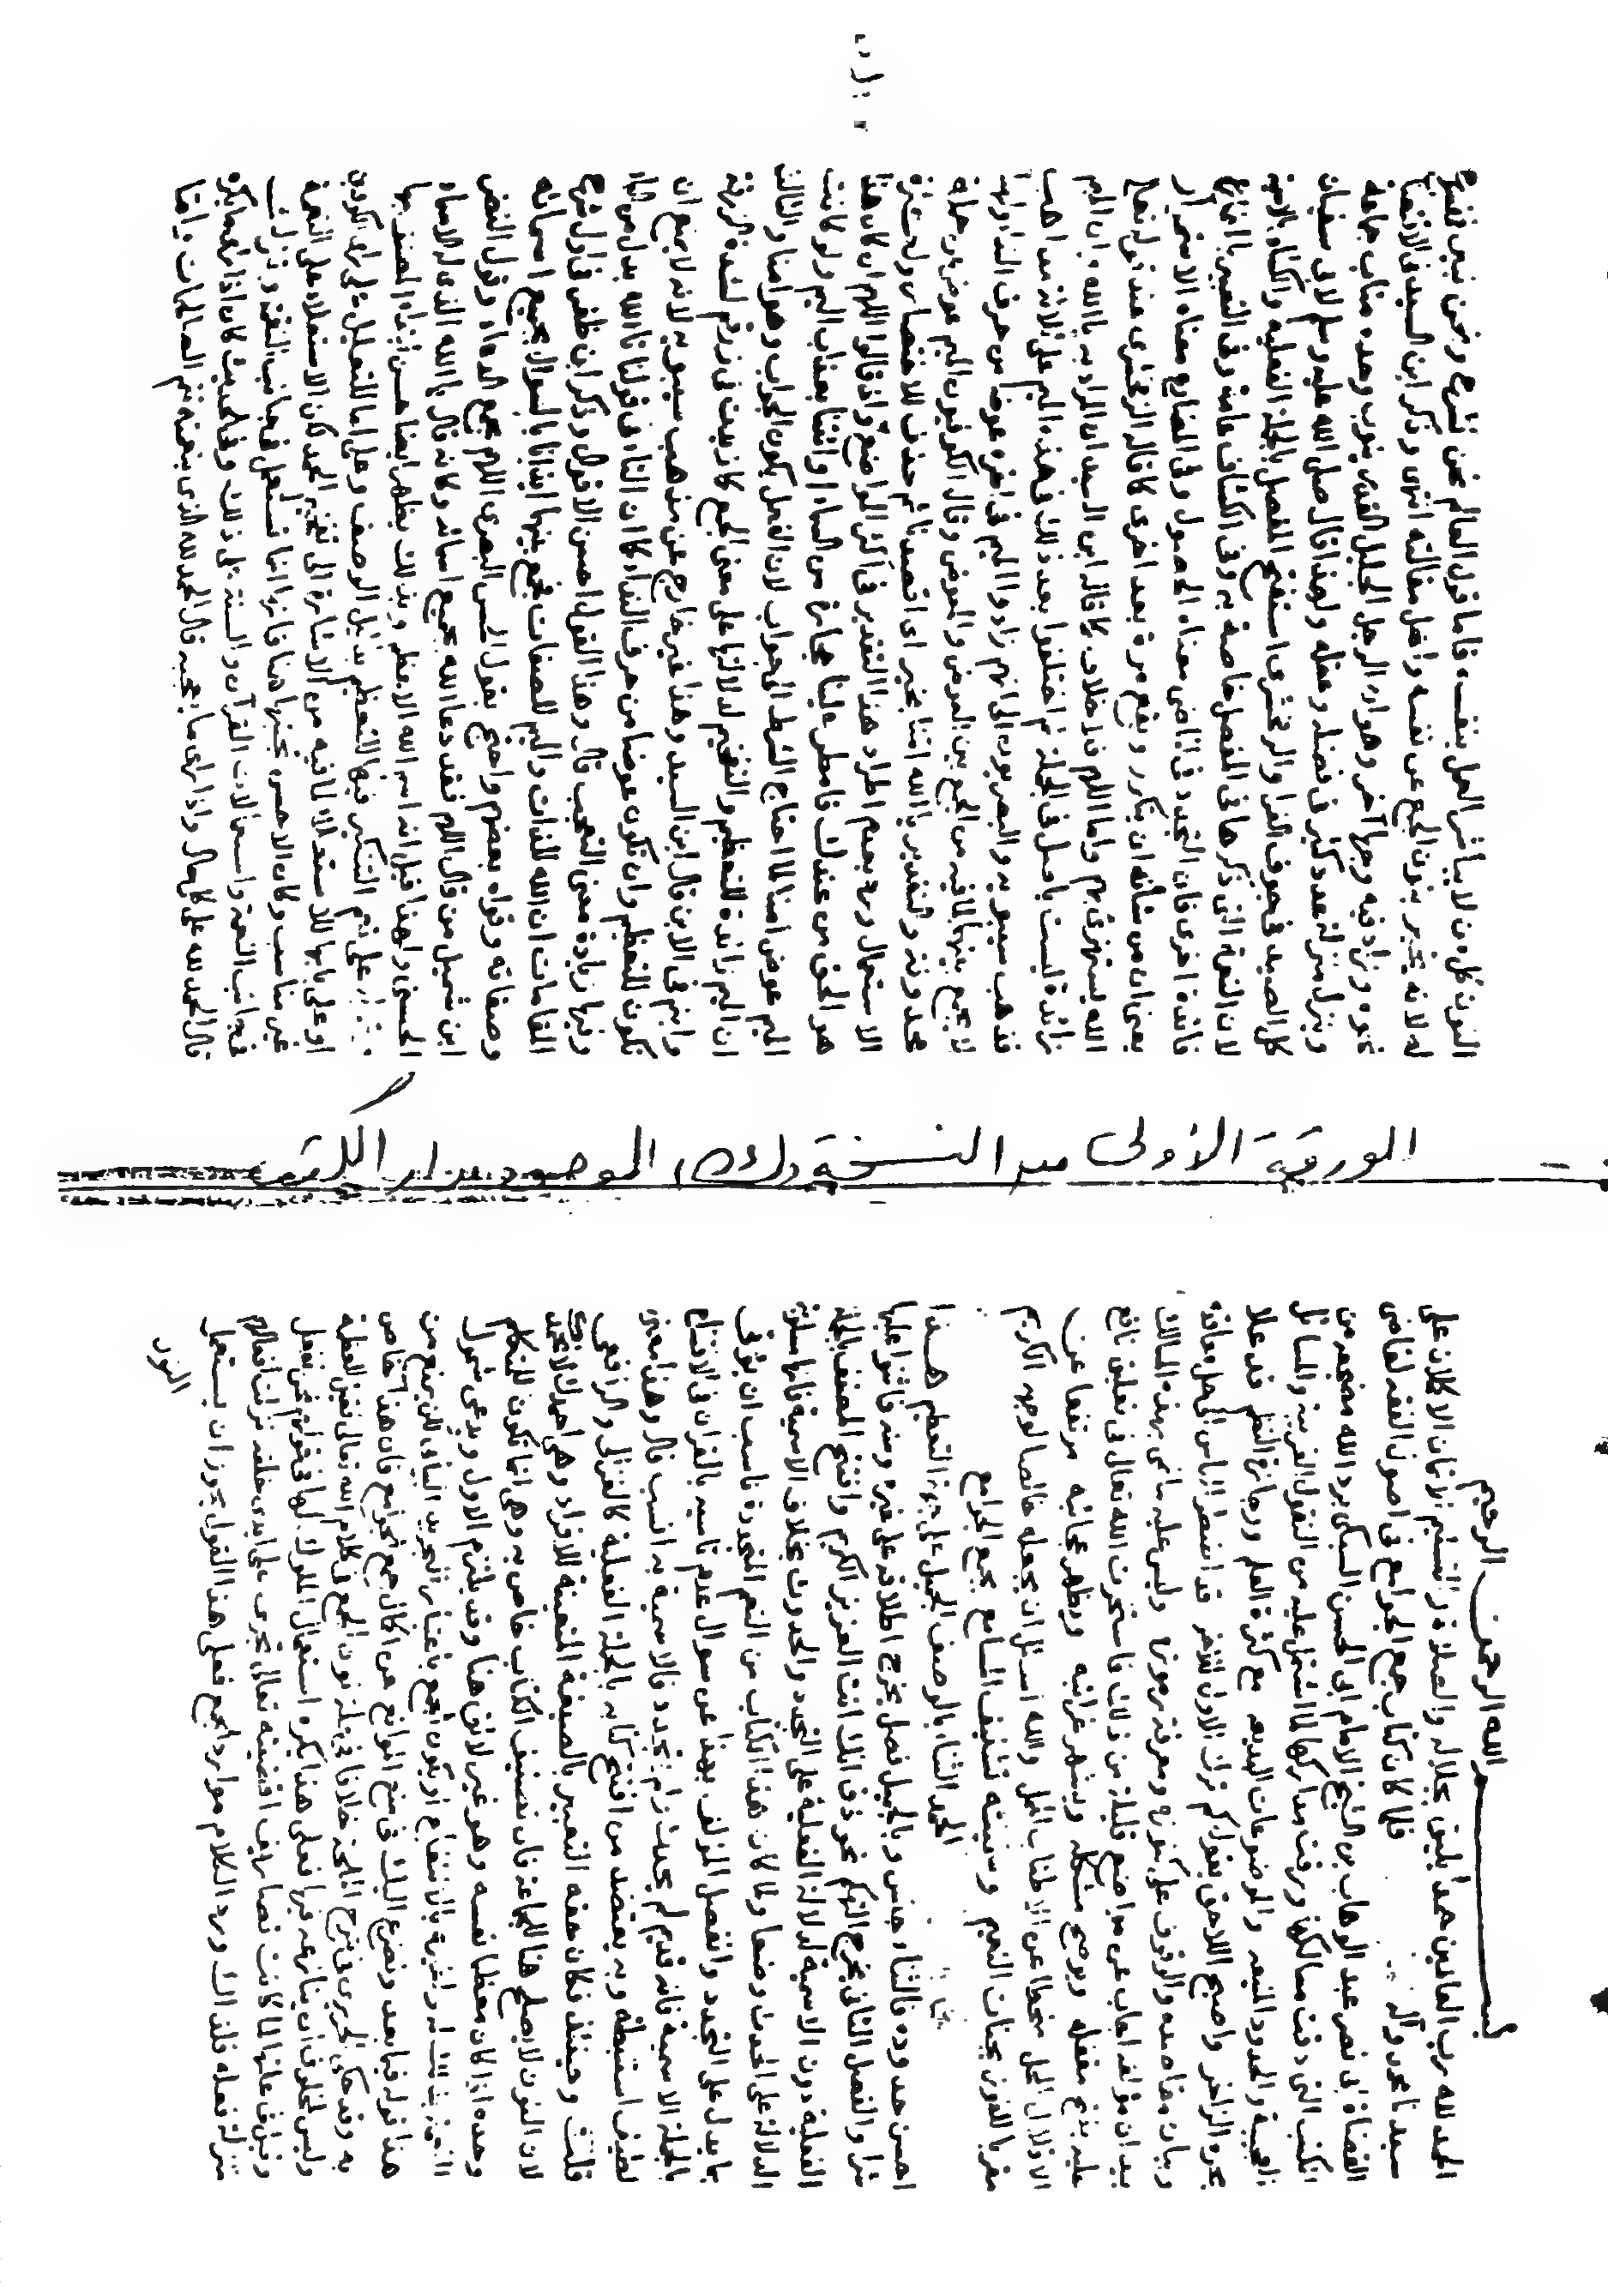 بسم الله الرحمن الرحيم
الحمد لله رب العالمين حمدا يليق بجلاله والصلاة والتسليم الاتمان الاكملان على
سيدنا محمد وآله فلما كان كتاب جمع الجوامع في اصول الفقه لقاضي
القضاة ابى نصر عبد الوهاب بن الشيخ الامام ابى الحسن السبكى برد الله مضجعه من
الكتب التى دقت مسالكها ورقت مداركها لما اشتمل عليه من النقول الغريبة والمسائل
العجيبة والحدود المنيعة والموضوعات البديعة مع كثرة العلم ووجازة النظم قد علا
بحره الزاخر واصبح اللاحق يقول كم ترك الاول للآخر قد اضطر الناس الى حل معانيه
وبيان مقاصده والوقوف على كنوزه ومعرفة رموزه وليس عليه ما في بهذه المسالك
بيد ان مؤلفه اجاب عن مواضع قليلة من ذلك فاستخرت الله تعالى فى تعليق نافع
عليه يفتح مقفله ويوضح مشكله ويشهر غرائبه ويظهر عجائبه مرتفعا عن
الاقلال المخل منحطا عن الاطناب الممل والله اسئل ان يجعله خالصا لوجهه الكريم
مقربا للفوز بجنات النعيم وسميته تشنيف المسامع بجمع الجوامع
الحمد الثناء بالوصف الجميل على جهة التعظيم هذا
احسن حدوده فالثناء جنس وبالجميل فصل يخرج اطلاقه على غيره ومنه فاثنوا عليها
شرا والفصل الثانى يخرج التهكم نحو ذق انك انت العزيز الكريم وافتتح المصنف بالجملة
الفعلية دون الاسمية لدلالة الفعلية على التجدد والحدوث بخلاف الاسمية فانها مسلوبة
الدلالة على الحدث وضعا ولما كان هذا الكتاب من النعم المتجددة ناسب ان يؤتى
بما يدل على التجدد وانفصل المؤلف بهذا عن سؤال عدم تاسيه بالقران فى الافتتاح
بالجملة الاسمية فانه قديم لم يحدث ولم يتجدد فالاسمية به انسب قال وهذا معنى
لطيف استنبطته وبه يعتضد من افتتح كتابه بالجملة الفعلية كالغزالى والرافعى
قلت وحينئذ فكان حقه التعبير بالصيغة المتعينة للافراد وهى احمدك لا نحمدك
لان النون لا يصلح هنا للجماعة فان تصنيف الكتاب خاص به وهى انما تكون للمتكلم
وحده اذا كان معظما نفسه وهو غير لائق هنا وقد يلتزم الاول ويدعى شمول
هذا قوله فيما بعد ونضرع اليك فى منع الموانع عن اكمال جمع الجوامع فان هذا خاص
به وقد حكى الحريرى فى شرح الملحة خلافا فى علة نون الجمع فى كلام الله تعالى فقيل للعظمة
وليس لمخلوق ان ينازعه فيها فعلى هذا يكره استعمال الملوك لها فى قولهم نحن نفعل
وقيل فى علتها لما كانت تصاريف اقضيته تعالى تجرى على ايدى خلقه نزلت افعالهم
منزلة فعله فلذلك ورد الكلام موارد الجمع فعلى هذا القول يجوز ان يستعمل
النون
الورقة الأولى من النسخة (ك) الموجودة بدار الكتب
النون كل من لا يباشر العمل بنفسه فاما قول العالم نحن نشرح ونحن نبين فمفسوح
له لانه يخبر بنون الجمع عن نفسه واهل مقالته انتهى وذكر ابن السيد فى الاقتضاب
نحوه وزاد فيه وجها آخر وهو ان الرجل الجليل القدر ينوب وحده مناب جماعة
وينزل منزلة عدد كثير فى فضله وعقله ولهذا قال صلى الله عليه وسلم لابى سفيان
كل الصيد فى جوف الفرا والزمخشرى استفتح المفصل بالجملة الفعلية والكشاف بالاسمية
لان النعمة التى ذكرها فى المفصل خاصة به وفى الكشاف عامة وفى التعبير بالمضارع
فائدة اخرى فان التجدد فى الماضى معناه الحصول وفى المضارع معناه الاستمرار
بمعنى ان من شأنه ان يتكرر ويقع مرة بعد اخرى كما قاله الزمخشرى عند قوله تعالى
الله يستهزئ بهم واما اللهم فلا خلاف كما قاله ابن السيد ان المراد به يا الله وان الميم
زائدة ليست باصل فى الجملة ثم اختلفوا بعد ذلك فى هذه الميم على ثلاثة مذاهب
فذهب سيبويه والبصريون الى انهم زادوا الميم فى اخره عوضا من حرف النداء ولهذا
لا يجمع بينهما لما فيه من الجمع بين العوض والمعوض وقال الكوفيون الميم عوض من جملة
محذوفة والتقدير يا الله امنا بخير اى اقصدنا ثم حذف للاختصار ولكثرة
الاستعمال ورد بعدم اطراد هذا التقدير فى اكثر المواضع واذ قالوا اللهم ان كان هذا
هو الحق من عندك فامطر علينا حجارة من السماء او ائتنا بعذاب اليم ولو كانت
الميم عوض امنا لما احتاج الشرط الى جواب لان الفعل يكون الجواب وهو امنا والثالث
ان الميم زائدة للتعظيم والتفخيم لدلالتها على معنى الجمع كما زيدت فى زرقم لشدة الزرقة
وابنم فى الابن قال ابن السيد وهذا غير خارج عن مذهب سيبويه لانه لا يمنع ان
تكون للتعظيم وان تكون عوضا من حرف النداء كما ان التاء فى قولنا تالله بدل من الباء
وفيها زيادة معنى التعجب قال وهذا القول احسن الاقوال وذكر ابن ظفر فى اول شرح
المقامات ان الله للذات والميم للصفات فجمع بينهما ايذانا بالسؤال بجميع اسمائه
وصفاته وقواه بعضهم واحتج بقول الحسن البصرى اللهم مجمع الدعاء وقول النضر
ابن شميل من قال اللهم فقد دعا الله بجميع اسمائه وكانه قال يا الله الذى له الاسماء
الحسنى ولهذا قيل انه اسم الله الاعظم وبذلك يظهر ايضا حسن ابتداء المصنف بها
على نعم التنكير فيها للتعظيم بدليل الوصف وعلى اما للتعليل على راى الكوفيين
او على بابها للاستعلاء لما فيه من الاشارة الى تفخيم الحمد لكن الاستعلاء على النعمة
غير مناسب وكان الاحسن تجنبها هنا فانها انما تستعمل فى جانب النقمة وتترك
فى جانب النعمة واستعمالات القرآن والسنة على ذلك وفى الحديث كان اذا راى ما يكره
قال الحمد لله على كل حال واذا راى ما يعجبه قال الحمد لله الذى بنعمته تتم الصالحات واما